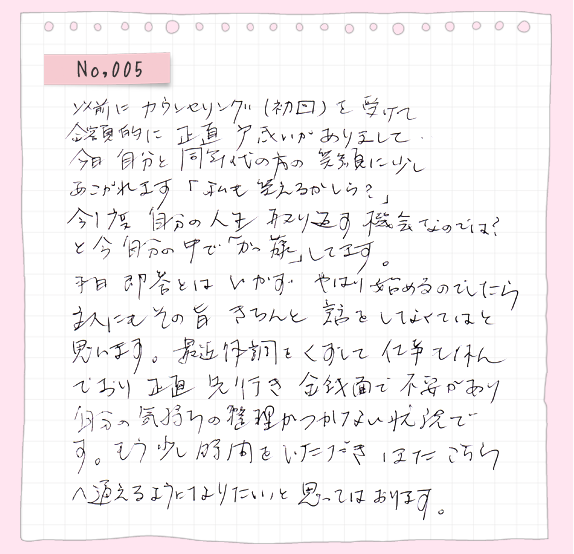 No,005
以前に カウンセリング(初回)を 受けて
金額的に 正直 戸惑いがありまして.
今日 自分と 同年代の方の 笑顔に少し
あこがれます 「私も 笑えるかしら?」
今1度 自分の 人生 取り返す 機会なのでは?
と今自分の中で「かっ藤」してます。
本日 即答とは いかず やはり始めるのでしたら
主人にも その旨 きちんと 話をしなくてはと
思います。最近体調をくずして 仕事も休ん
でおり 正直 先行き 金銭面で 不安があり
自分の気持ちの整理がつかない状況で
す。もう少し時間をいただき またこちら
へ通えるようになりたいと思ってはおります。